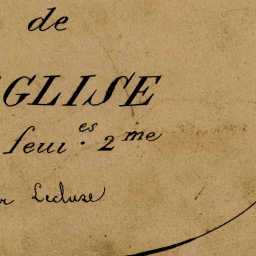 de
GLISE
feui.es 2me
r Lecluse